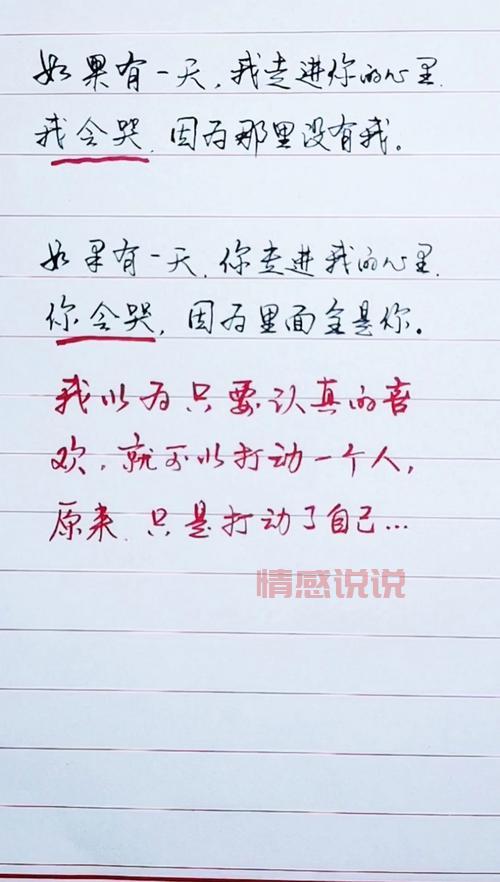 如果有一天,我走进你的心里.
我会哭,因为那里没有我。
如果有一天,你走进我的心里.
你会哭,因为里面全是你。
我以为只要认真的喜
欢,就可以打动一个人,
原来,只是打动了自己...
情感说说